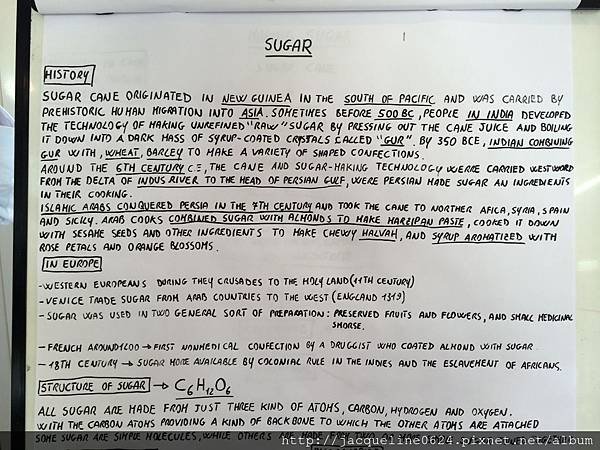 SUGAR
HISTORY
SUGAR CANE ORIGINATED IN NEW GUINEA IN THE SOUTH OF PACIFIC AND WAS CARRIED BY
PREHISTORIC HUMAN MIGRATION INTO ASIA. SOMETIMES BEFORE 500 BC, PEOPLE IN INDIA DEVELOPED
THE TECHNOLOGY OF MAKING UNREFINED "RAW" SUGAR BY PRESSING OUT THE CANE JUICE AND BOILING
IT DOWN INTO A DARK MASS OF SYRUP-COATED CRYSTALS CALLED "GUR". BY 350 BCE, INDIAN COMBINING
GUR WITH, WHEAT, BARLEY TO MAKE A VARIETY OF SHAPED CONFECTIONS.
AROUND THE 6TH CENTURY C.E, THE CANE AND SUGAR-MAKING TECHNOLOGY WERRE CARRIED WESTWORD
FROM THE DELTA OF INDUS RIVER TO THE HEAD OF PERSIAN GULF, WERE PERSIAN MADE SUGAR AN INGREDIENTS
IN THEIR COOKING.
ISLAMIC ARABS CONQUERED PERSIA IN THE 7TH CENTURY AND TOOK THE CANE TO NORTHER AFICA, SYRIA, SPAIN
AND SICILY. ARAB COOKS COMBINED SUGAR WITH ALMONDS TO MAKE MARZIPAN PASTE, COOKED IT DOWN
WITH SESAME SEEDS AND OTHER INGREDIENTS TO MAKE CHEWY HALVAH, AND SYRUP AROMATIZED WITH
ROSE PETALS AND ORANGE BLOSSOMS.
IN EUROPE
-WESTERN EUROPEANS DURING THEY CRUSADES TO THE HOLY LAND (11TH CENTURY)
-VENICE TRADE SUGAR FROM ARAB COUNTRIES TO THE WEST (ENGLAND 1319)
-SUGAR WAS USED IN TWO GENERAL SORT OF PREPARATION: PRESERVED FRUITS AND FLOWERS, AND SMALL MEDICINAL
SMORSE.
-FRENCH AROUND 1200 → FIRST NONMEDICAL CONFECTION BY A DRUGGIST WHO COATED ALMOND WITH SUGAR
-18TH CENTURY → SUGAR MORE AVAILABLE BY COLONIAL RULE IN THE INDIES AND THE ESLAVEMENT OF AFRICANS.
STRUCTURE OF SUGAR → C6H12O6
ALL SUGAR ARE MADE FROM JUST THREE KIND OF ATOMS, CARBON, HYDROGEN AND OXYGEN.
WITH THE CARBON ATOMS PROVIDING A KIND OF BACKBONE TO WHICH THE OTHER ATOMS ARE ATTACHED
SOME SUGAR ARE SIMPLE MOLECULES, WHILE OTHERS ARE MADE
http://jacqueline0624.pixnet.net/album